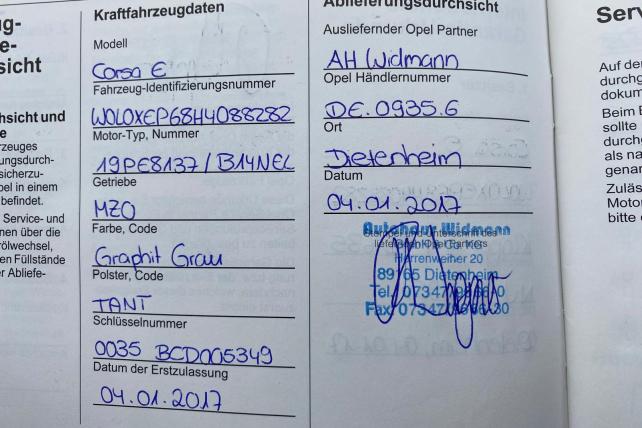 ug-
e-
sicht
hsicht und
e
rzeuges
ungsdurch-
sicherzu-
pel in einem
befindet.
Service- und
nen über die
ölwechsel,
en Füllstände
er Abliefe-
Kraftfahrzeugdaten
Modell
Corsa E
Fahrzeug-Identifizierungsnummer
W0L0XEP68H4088282
Motor-Typ, Nummer
19PE8137 / B14NEL
Getriebe
MZ0
Farbe, Code
Graphit Grau
Polster, Code
TANT
Schlüsselnummer
0035 BCD005349
Datum der Erstzulassung
04.01.2017
Ablieferungsdurchsicht
Ausliefernder Opel Partner
AH Widmann
Opel Händlernummer
DE.0935.6
Ort
Dietenheim
Datum
04.01.2017
Autohaus Widmann
Stempel und Unterschrift des
liefernden Opel Partners
Herrenweiher 20
89165 Dietenheim
Tel. 07347
Fax 07347
Serv
Auf der
durchg
dokum
Beim E
sollte
durchg
als na
genan
Zuläs
Motor
bitte